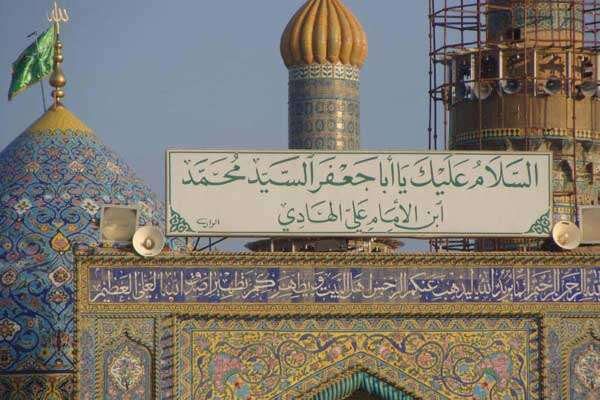 السَّلَامُ عَلَيْكَ يَا أَبَا جَعْفَرَ السَّيِّد مُحَمَّد
ابْنِ الإِمَامِ عَلِيِّ الهَادِي
الله الرحمن الرحيم إنما يريد الله ليذهب عنكم الرجس أهل البيت ويطهركم تطهيرا صدق الله العلي العظيم